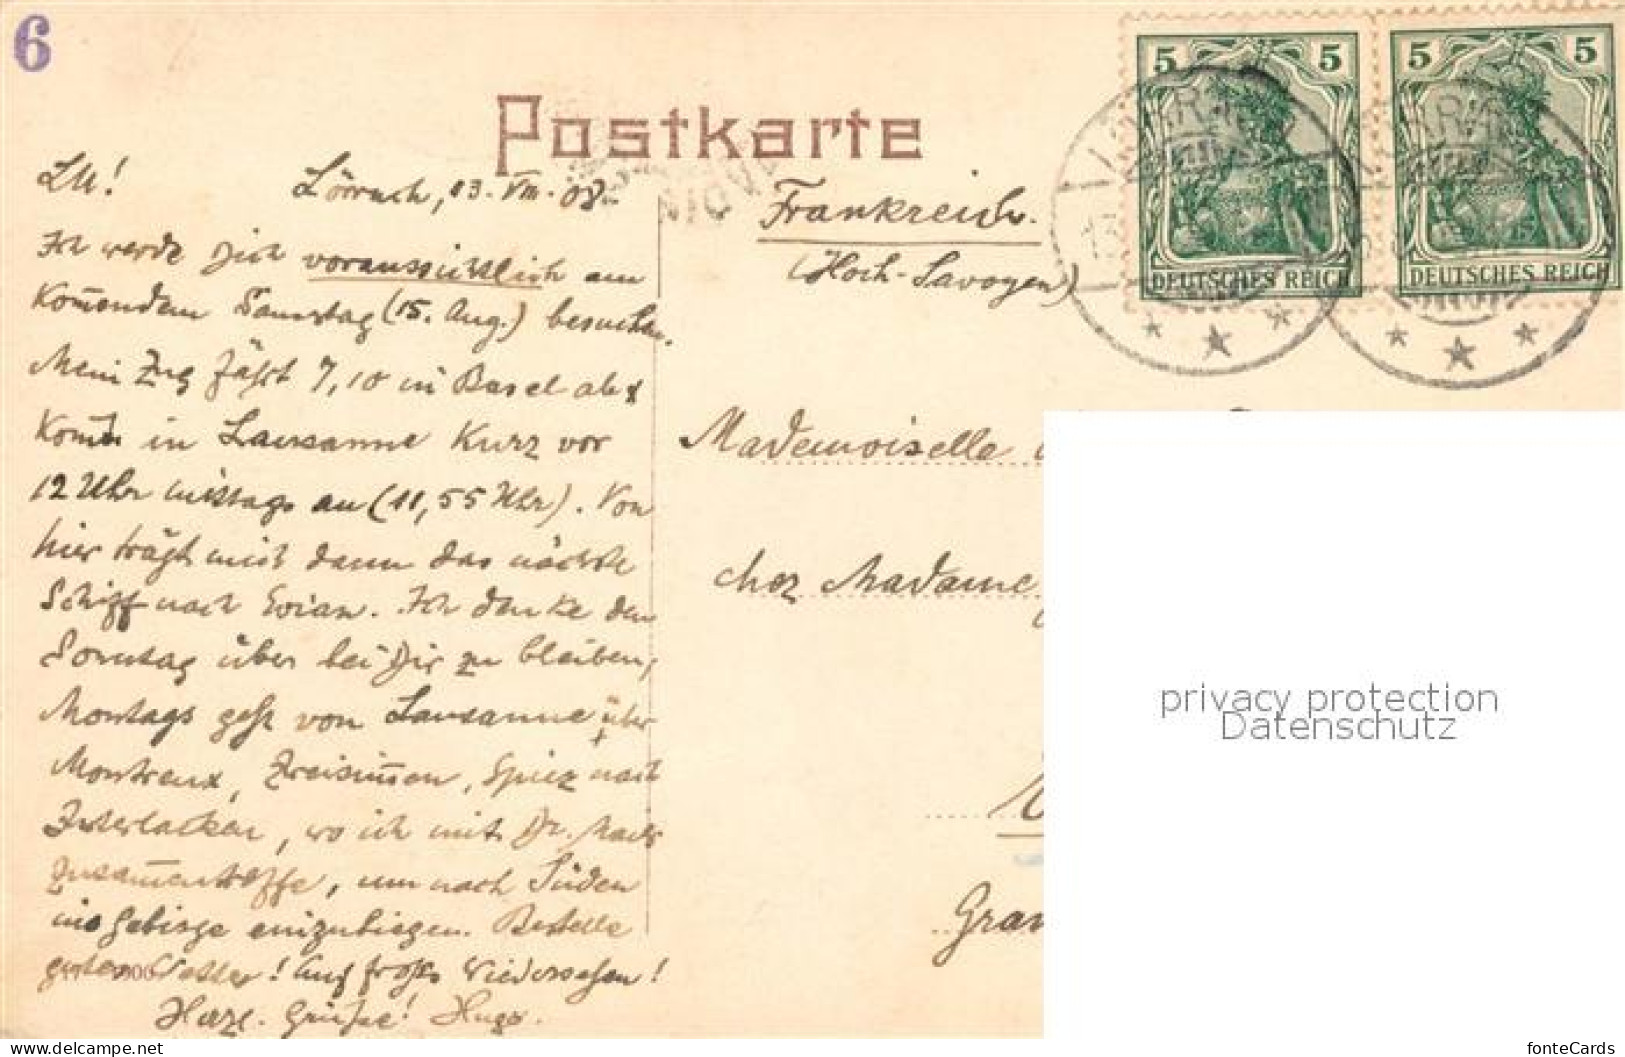 6
5 5 5 5
DEUTSCHES REICH DEUTSCHES REICH
Postkarte
Lörrach, 13. VIII. 08.
Ich werde Dich voraussichtlich am
Kom̄enden Samstag (15. Aug.) besuchen.
Mein Zug fährt 7,10 in Basel ab &
Kom̄t in Lausanne Kurz vor
12 Uhr mittags an (11,55 Uhr). Von
hier trägt mich dann das nächste
Schiff nach Evian. Ich denke den
Sonntag über bei Dir zu bleiben,
Montags geht von Lausanne über
Montreux, Zweisim̄en, Spiez nach
Interlaken, wo ich mit Dr.
zusam̄entreffe, um nach Süden
ins Gebirge einzubiegen. Bestelle
gutes Wetter! Auf frohes Wiedersehen!
Herzl. Grüße! Hugo.
Frankreich.
(Hoch-Savoyen)
Mademoiselle
chez Madame
Gran
privacy protection
Datenschutz
www.ansichtskartenversand.com
fonteCards